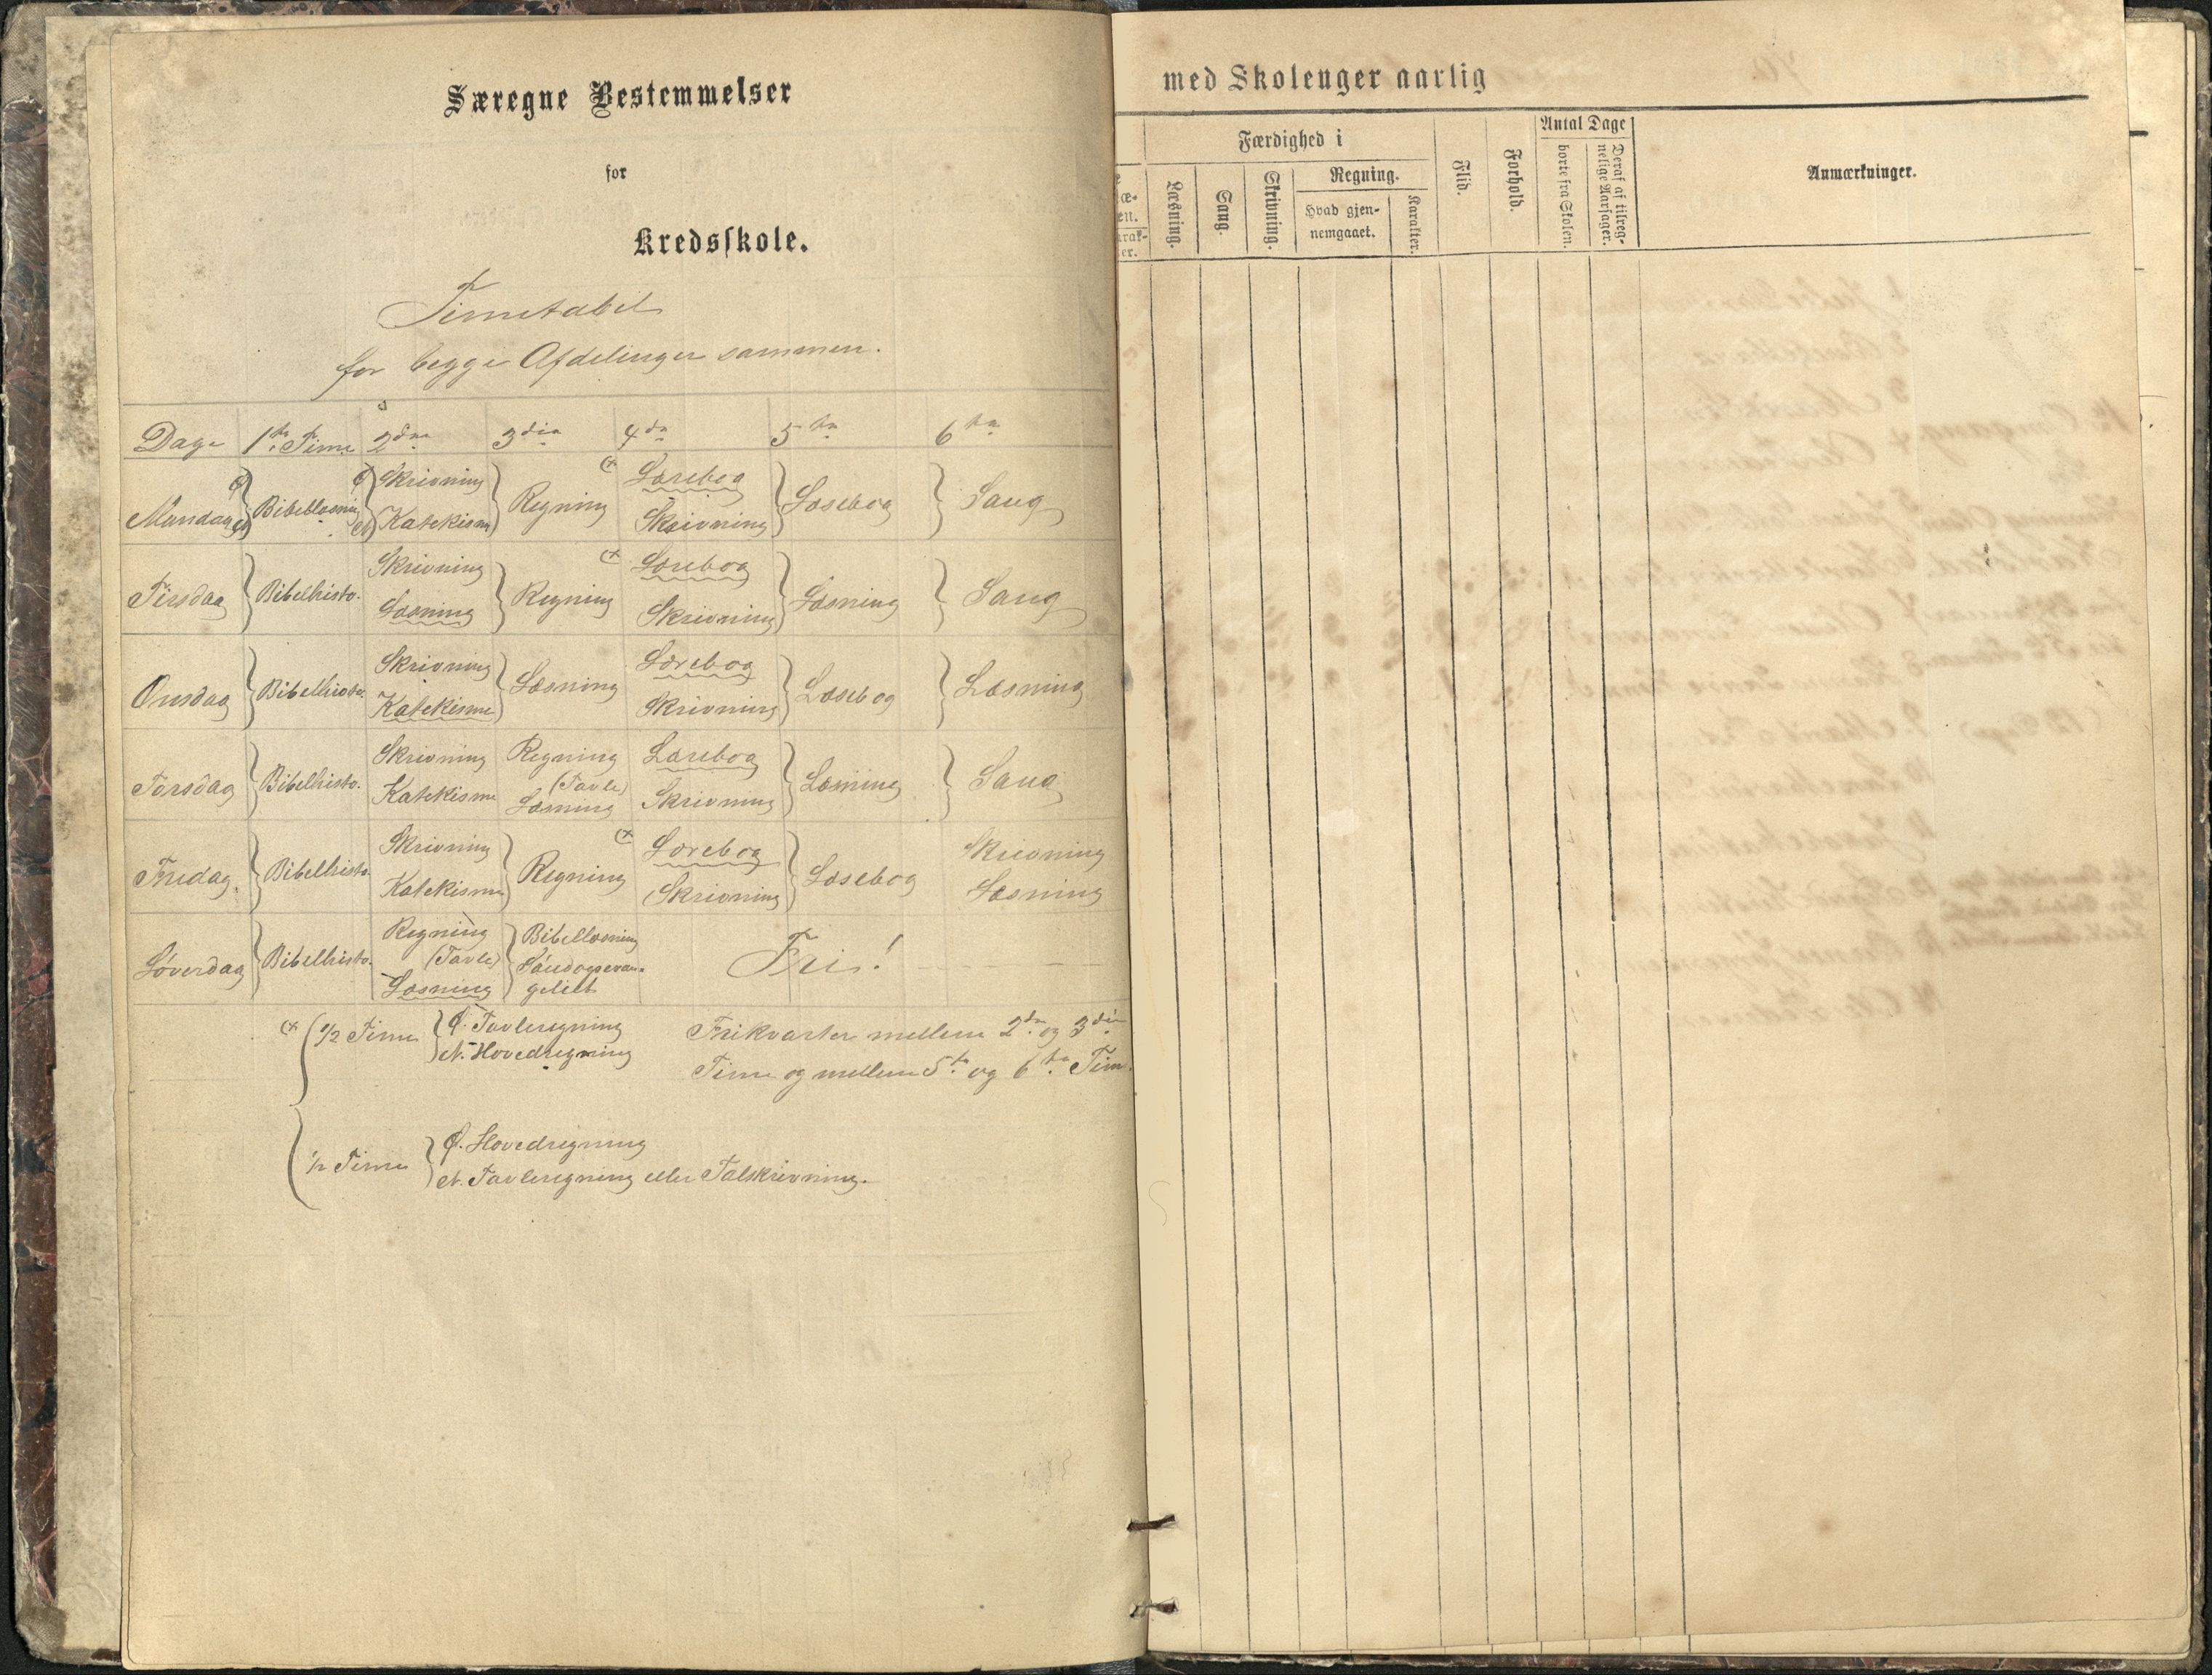 Særegne Bestemmelser
for
Kredsskole.
Timetabel
for begge Afdelinger sammen.
Dage 1ste Time 2den 3die 4de 5te 6te
Mandag Ø N } Bibellæsning Ø N } Skrivning Katekisme } Regning (x Lærebog Skrivning } Læsebog } Sang
Tirsdag } Bibelhisto. Skrivning Læsning } Regning (x Lærebog Skrivning } Læsning } Sang
Onsdag } Bibelhisto. Skrivning Katekisme } Læsning Lærebog Skrivning } Læsebog } Læsning
Torsdag } Bibelhisto. Skrivning Katekisme Regning (Tavle) Læsning Lærebog Skrivning } Læsning } Sang
Fredag. } Bibelhisto. Skrivning Katekisme } Regning (x Lærebog Skrivning } Læsebog Skrivning Læsning
Löverdag } Bibelhisto. Regning (Tavle) Læsning } Bibellæsning Söndagsevangeliet Fri! — —
(x ( 1/2 Time } Ø. Tavleregning
N. Hovedregning
Frikvarter mellem 2den og 3die
Time og mellem 5te og 6te Tim.
( 1/2 Time } Ø. Hovedregning
N. Tavleregning eller Talskrivning.
med Skolenger aarlig
Færdighed i
Læsning.
Sang.
Skrivning.
Regning.
Hvad gjen-
nemgaaet.
Karakter.
Flid.
Forhold.
Antal Dage
borte fra Skolen.
Deraf af tilreg-
nelige Aarsager.
Anmærkninger.
æ-
en.
arak-
er.